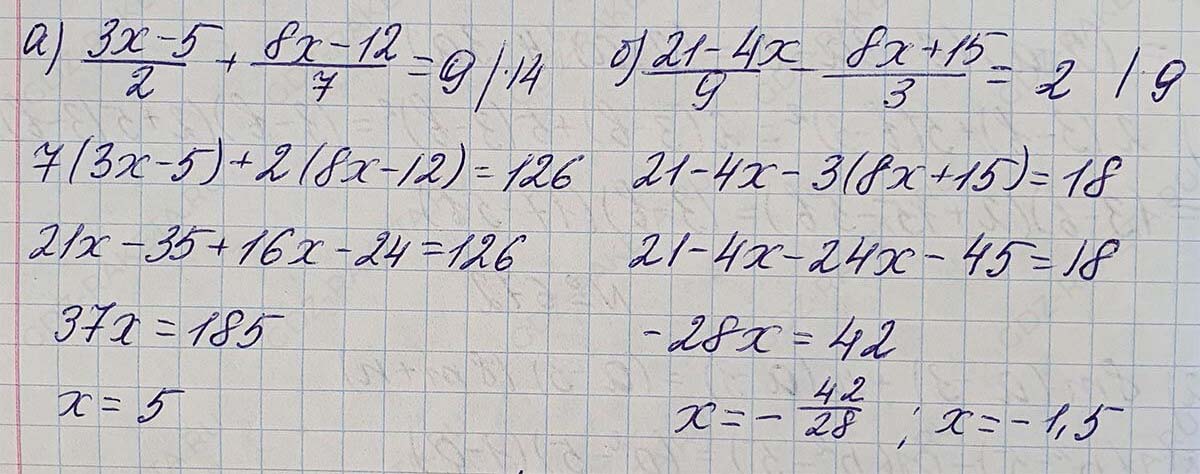 а) (3x-5)/2 + (8x-12)/7 = 9 | ·14
7(3x-5)+2(8x-12)=126
21x-35+16x-24=126
37x=185
x=5
б) (21-4x)/9 - (8x+15)/3 = 2 | 9
21-4x-3(8x+15)=18
21-4x-24x-45=18
-28x=42
x=-42/28; x=-1,5